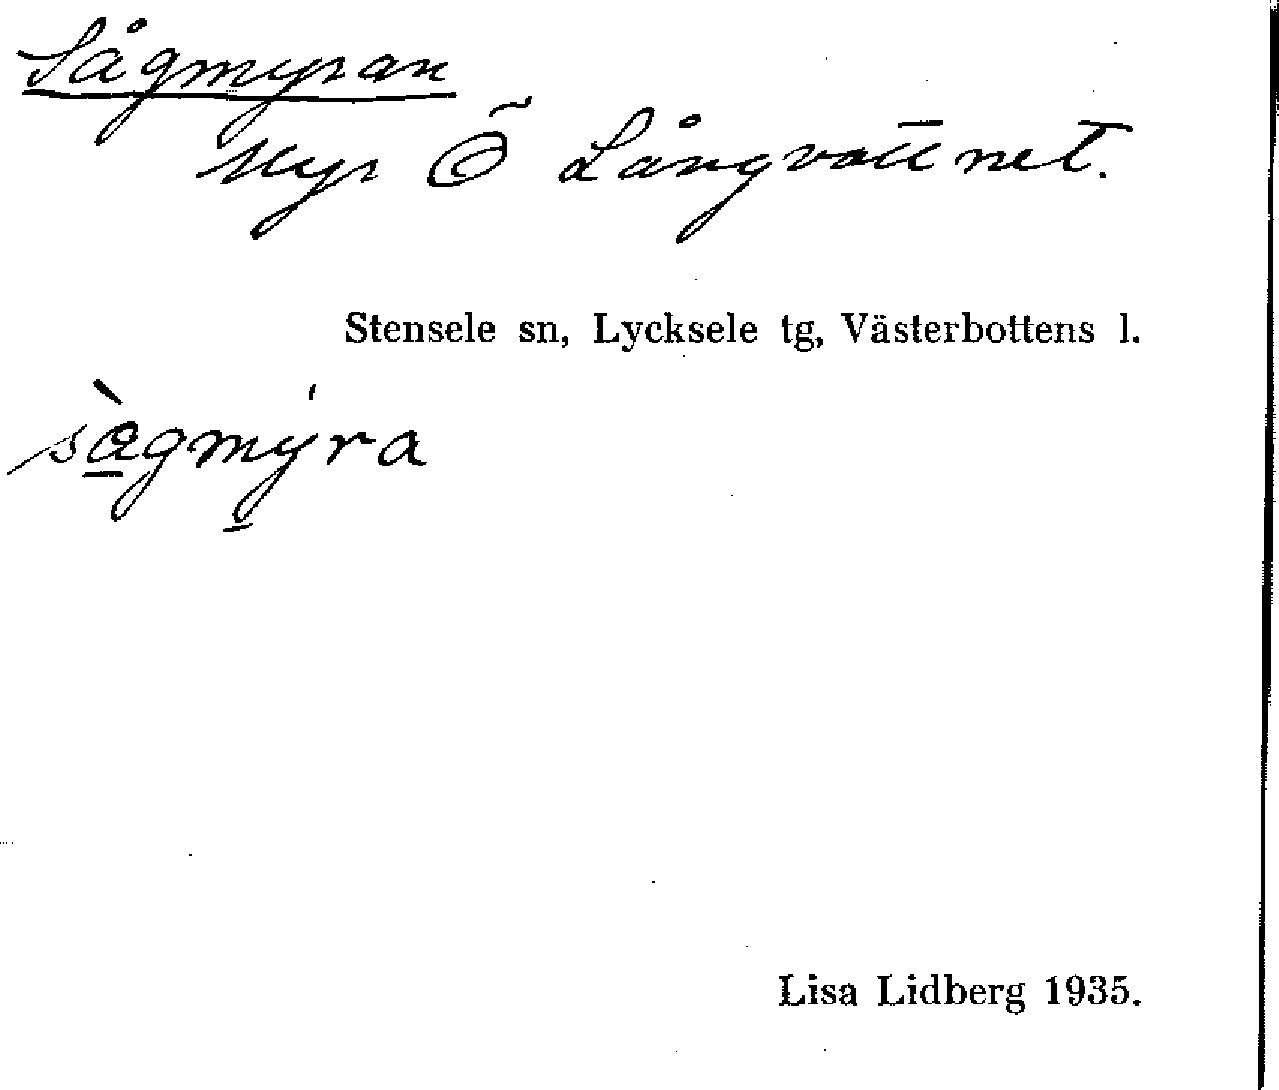 Sågmyran
Myr Ö Långvattnet.
Stensele sn, Lycksele tg, Västerbottens l.
sàgmýra
Lisa Lidberg 1935.